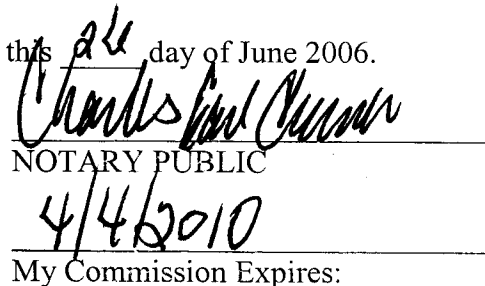 this 26 day of June 2006.
Charles Earl
NOTARY PUBLIC
4/4/2010
My Commission Expires: